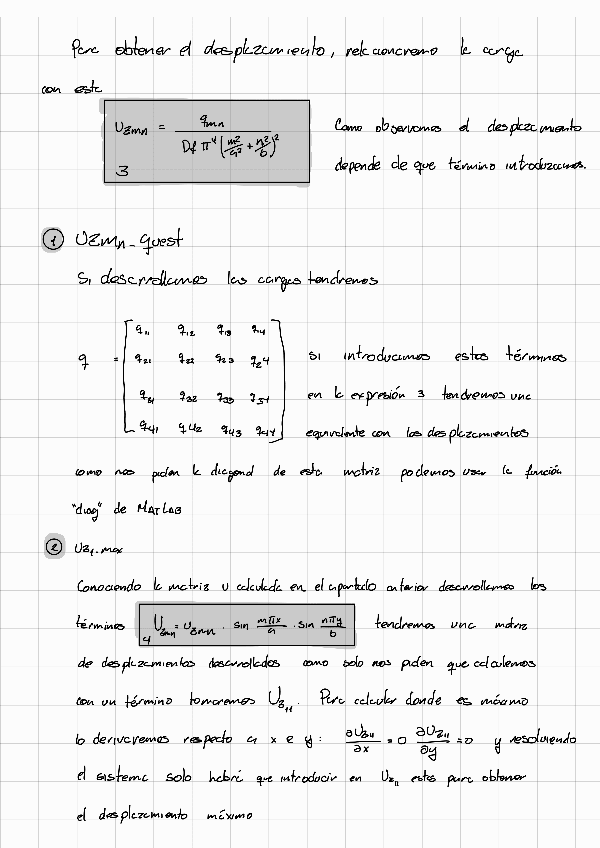 Para obtener el desplazamiento, relacionaremo la carga
con este
Uzmn = qmn / (Df π⁴ (m²/a² + n²/b)²)
3
Como observamos el desplazamiento
depende de que término introduzcamos.
1 Uzmn_quest
Si desarrollamos las cargas tendremos
q = [q11 q12 q13 q14
q21 q22 q23 q24
q31 q32 q33 q34
q41 q42 q43 q44]
si introducimos estos términos
en la expresión 3 tendremos una
equivalente con los desplazamientos
como nos piden la diagonal de esta matriz podemos usar la función
"diag" de MATLAB
2 Uz1.max
Conociendo la matriz U calculada en el apartado anterior desarrollamos los
términos 4 Uzmn = Uzmn · sin mπx/a · sin nπy/b tendremos una matriz
de desplazamientos desarrollados como solo nos piden que calculemos
con un término tomaremos Uz11. Para calcular donde es máximo
lo derivaremos respecto a x e y: ∂Uz11/∂x = 0 ∂Uz11/∂y = 0 y resolviendo
el sistema solo habrá que introducir en Uz11 estos para obtener
el desplazamiento máximo